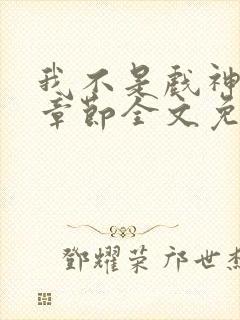 我不是戏神
章节全文免
鄧耀荣 邝世杰